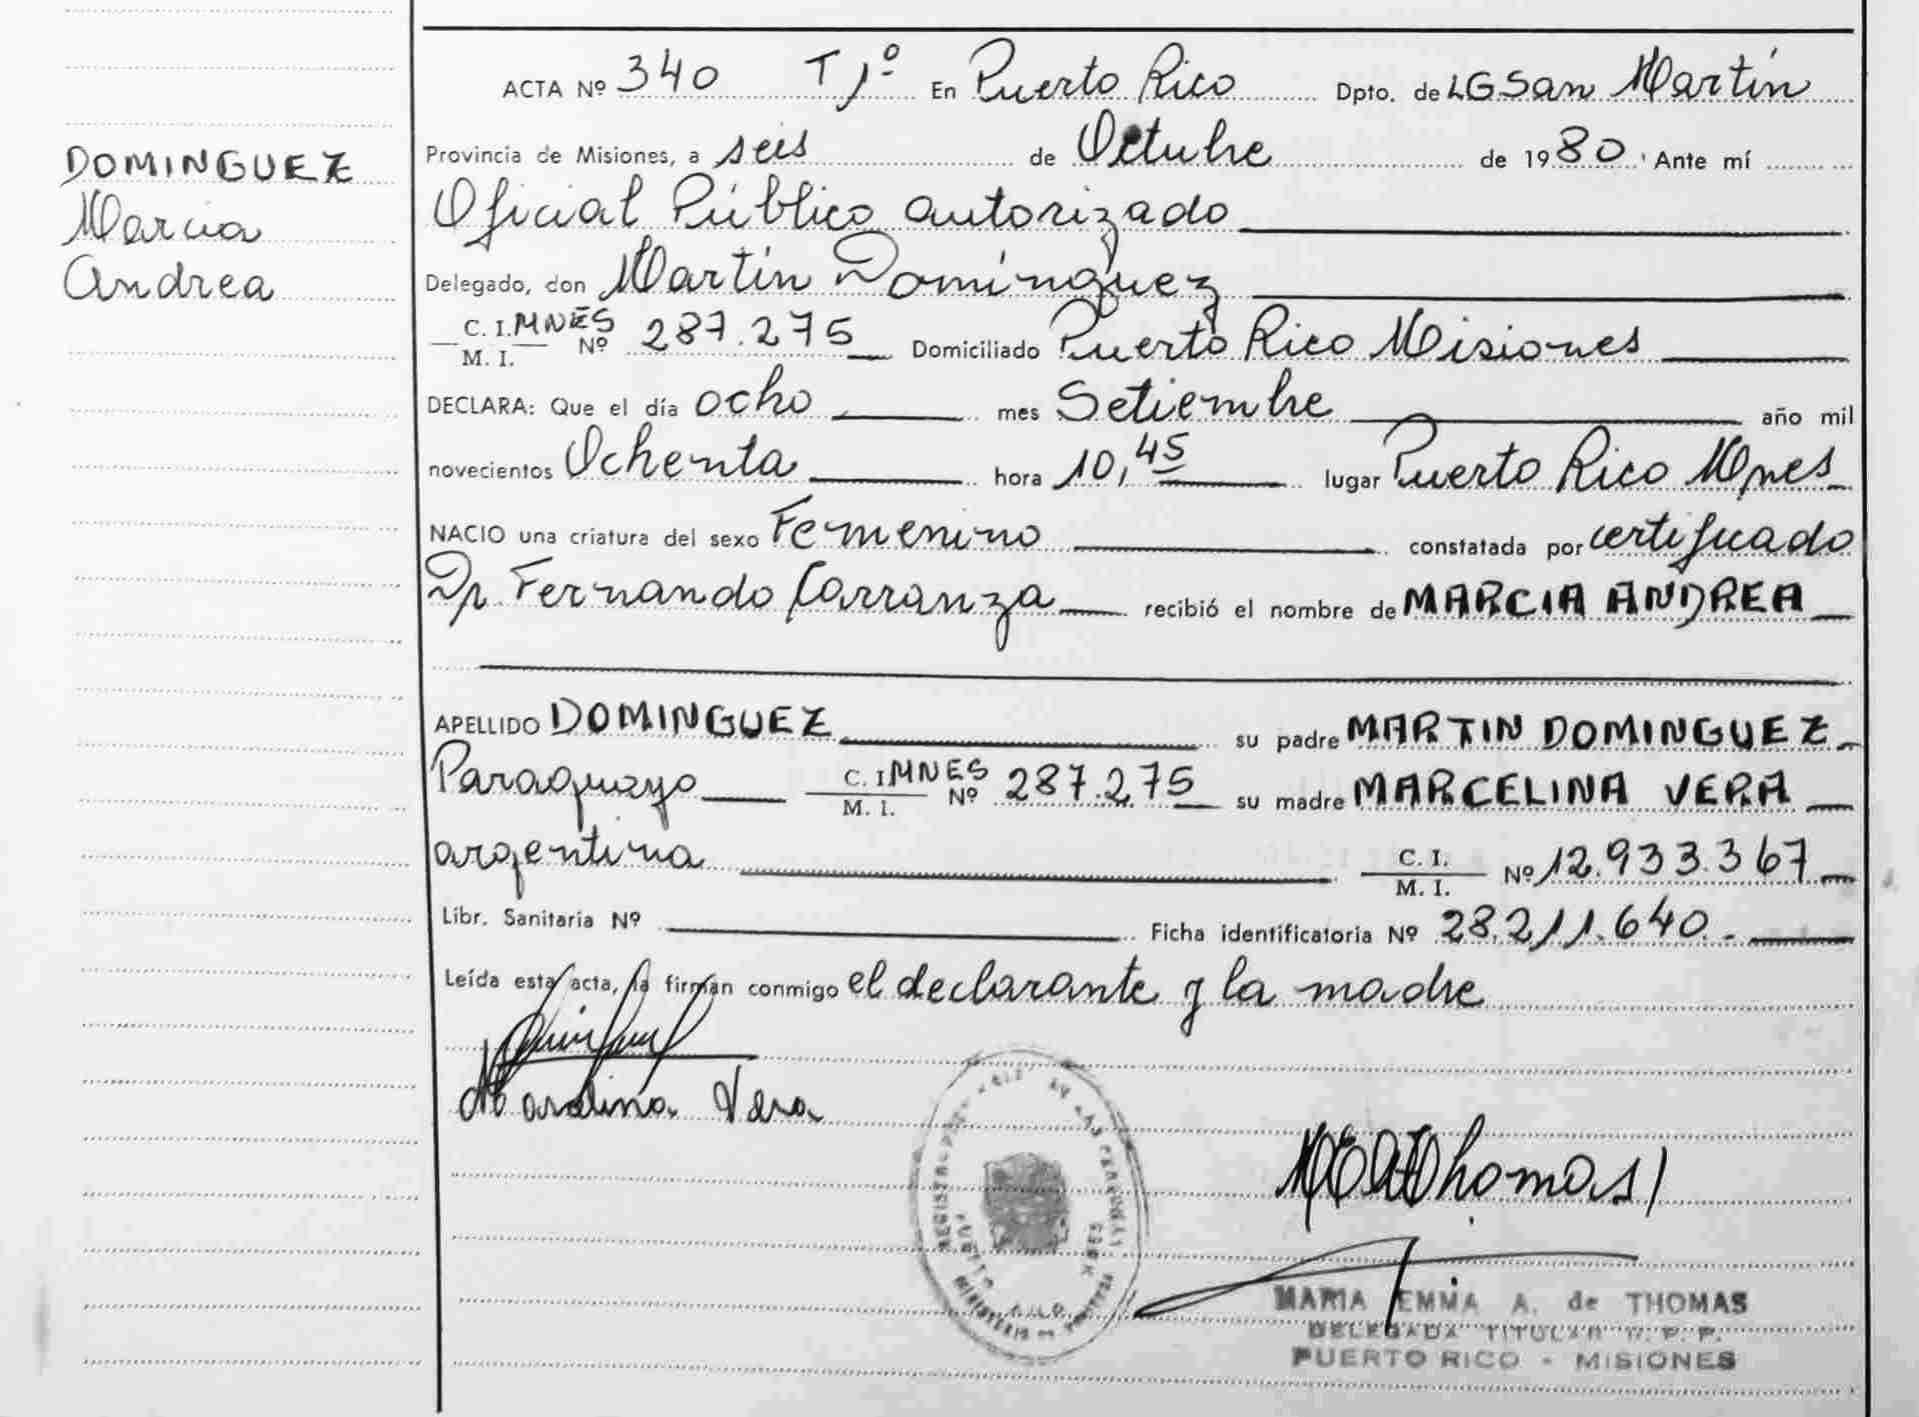 DOMINGUEZ
Marcia
Andrea
ACTA Nº 340 T 1º En Puerto Rico Dpto. de LG San Martín
Provincia de Misiones, a seis de Octubre de 1980. Ante mí
Oficial Público autorizado
Delegado, don Martín Domínguez
C. I. MNES Nº 287.275 Domiciliado Puerto Rico Misiones
M. I.
DECLARA: Que el día ocho mes Setiembre año mil
novecientos Ochenta hora 10,45 lugar Puerto Rico Mnes
NACIO una criatura del sexo Femenino constatada por certificado
Dr. Fernando Carranza recibió el nombre de MARCIA ANDREA
APELLIDO DOMINGUEZ su padre MARTIN DOMINGUEZ
Paraguayo C. I. MNES Nº 287.275 su madre MARCELINA VERA
M. I.
argentina C. I. Nº 12.933.367
M. I.
Libr. Sanitaria Nº Ficha identificatoria Nº 28.211.640.-
Leída esta acta, la firman conmigo el declarante y la madre
Vera
Thomas
MARIA EMMA A. de THOMAS
DELEGADA TITULAR R. P. P.
PUERTO RICO - MISIONES